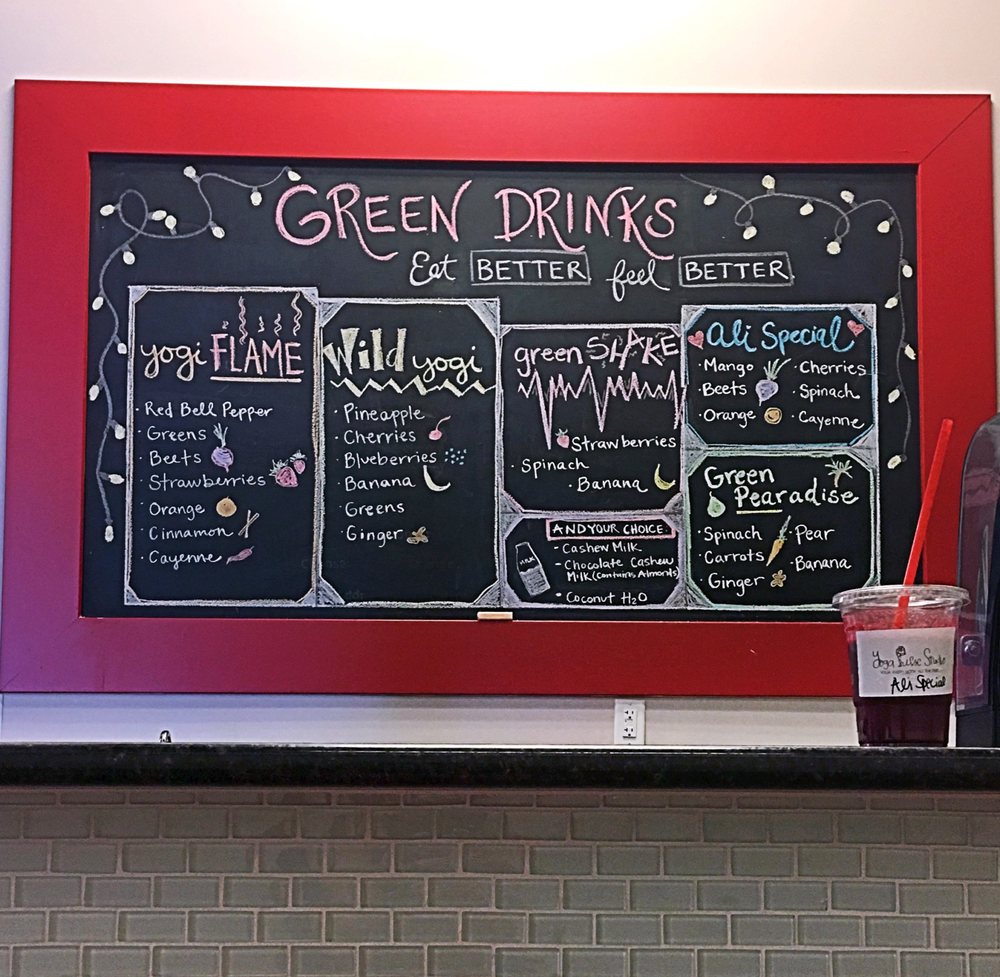 GREEN DRINKS
Eat BETTER feel BETTER
yogi FLAME
· Red Bell Pepper
· Greens
· Beets
· Strawberries
· Orange
· Cinnamon
· Cayenne
Wild yogi
· Pineapple
· Cherries
· Blueberries
· Banana
· Greens
· Ginger
green SHAKE
Strawberries
· Spinach
· Banana
AND YOUR CHOICE:
- Cashew Milk
- Chocolate Cashew
Milk (Contains Almonds)
• Coconut H2O
Ali Special
· Mango · Cherries
· Beets · Spinach
Orange · Cayenne
Green
Pearadise
· Spinach · Pear
· Carrots · Banana
· Ginger
Yoga Pulse Studio
Ali Special